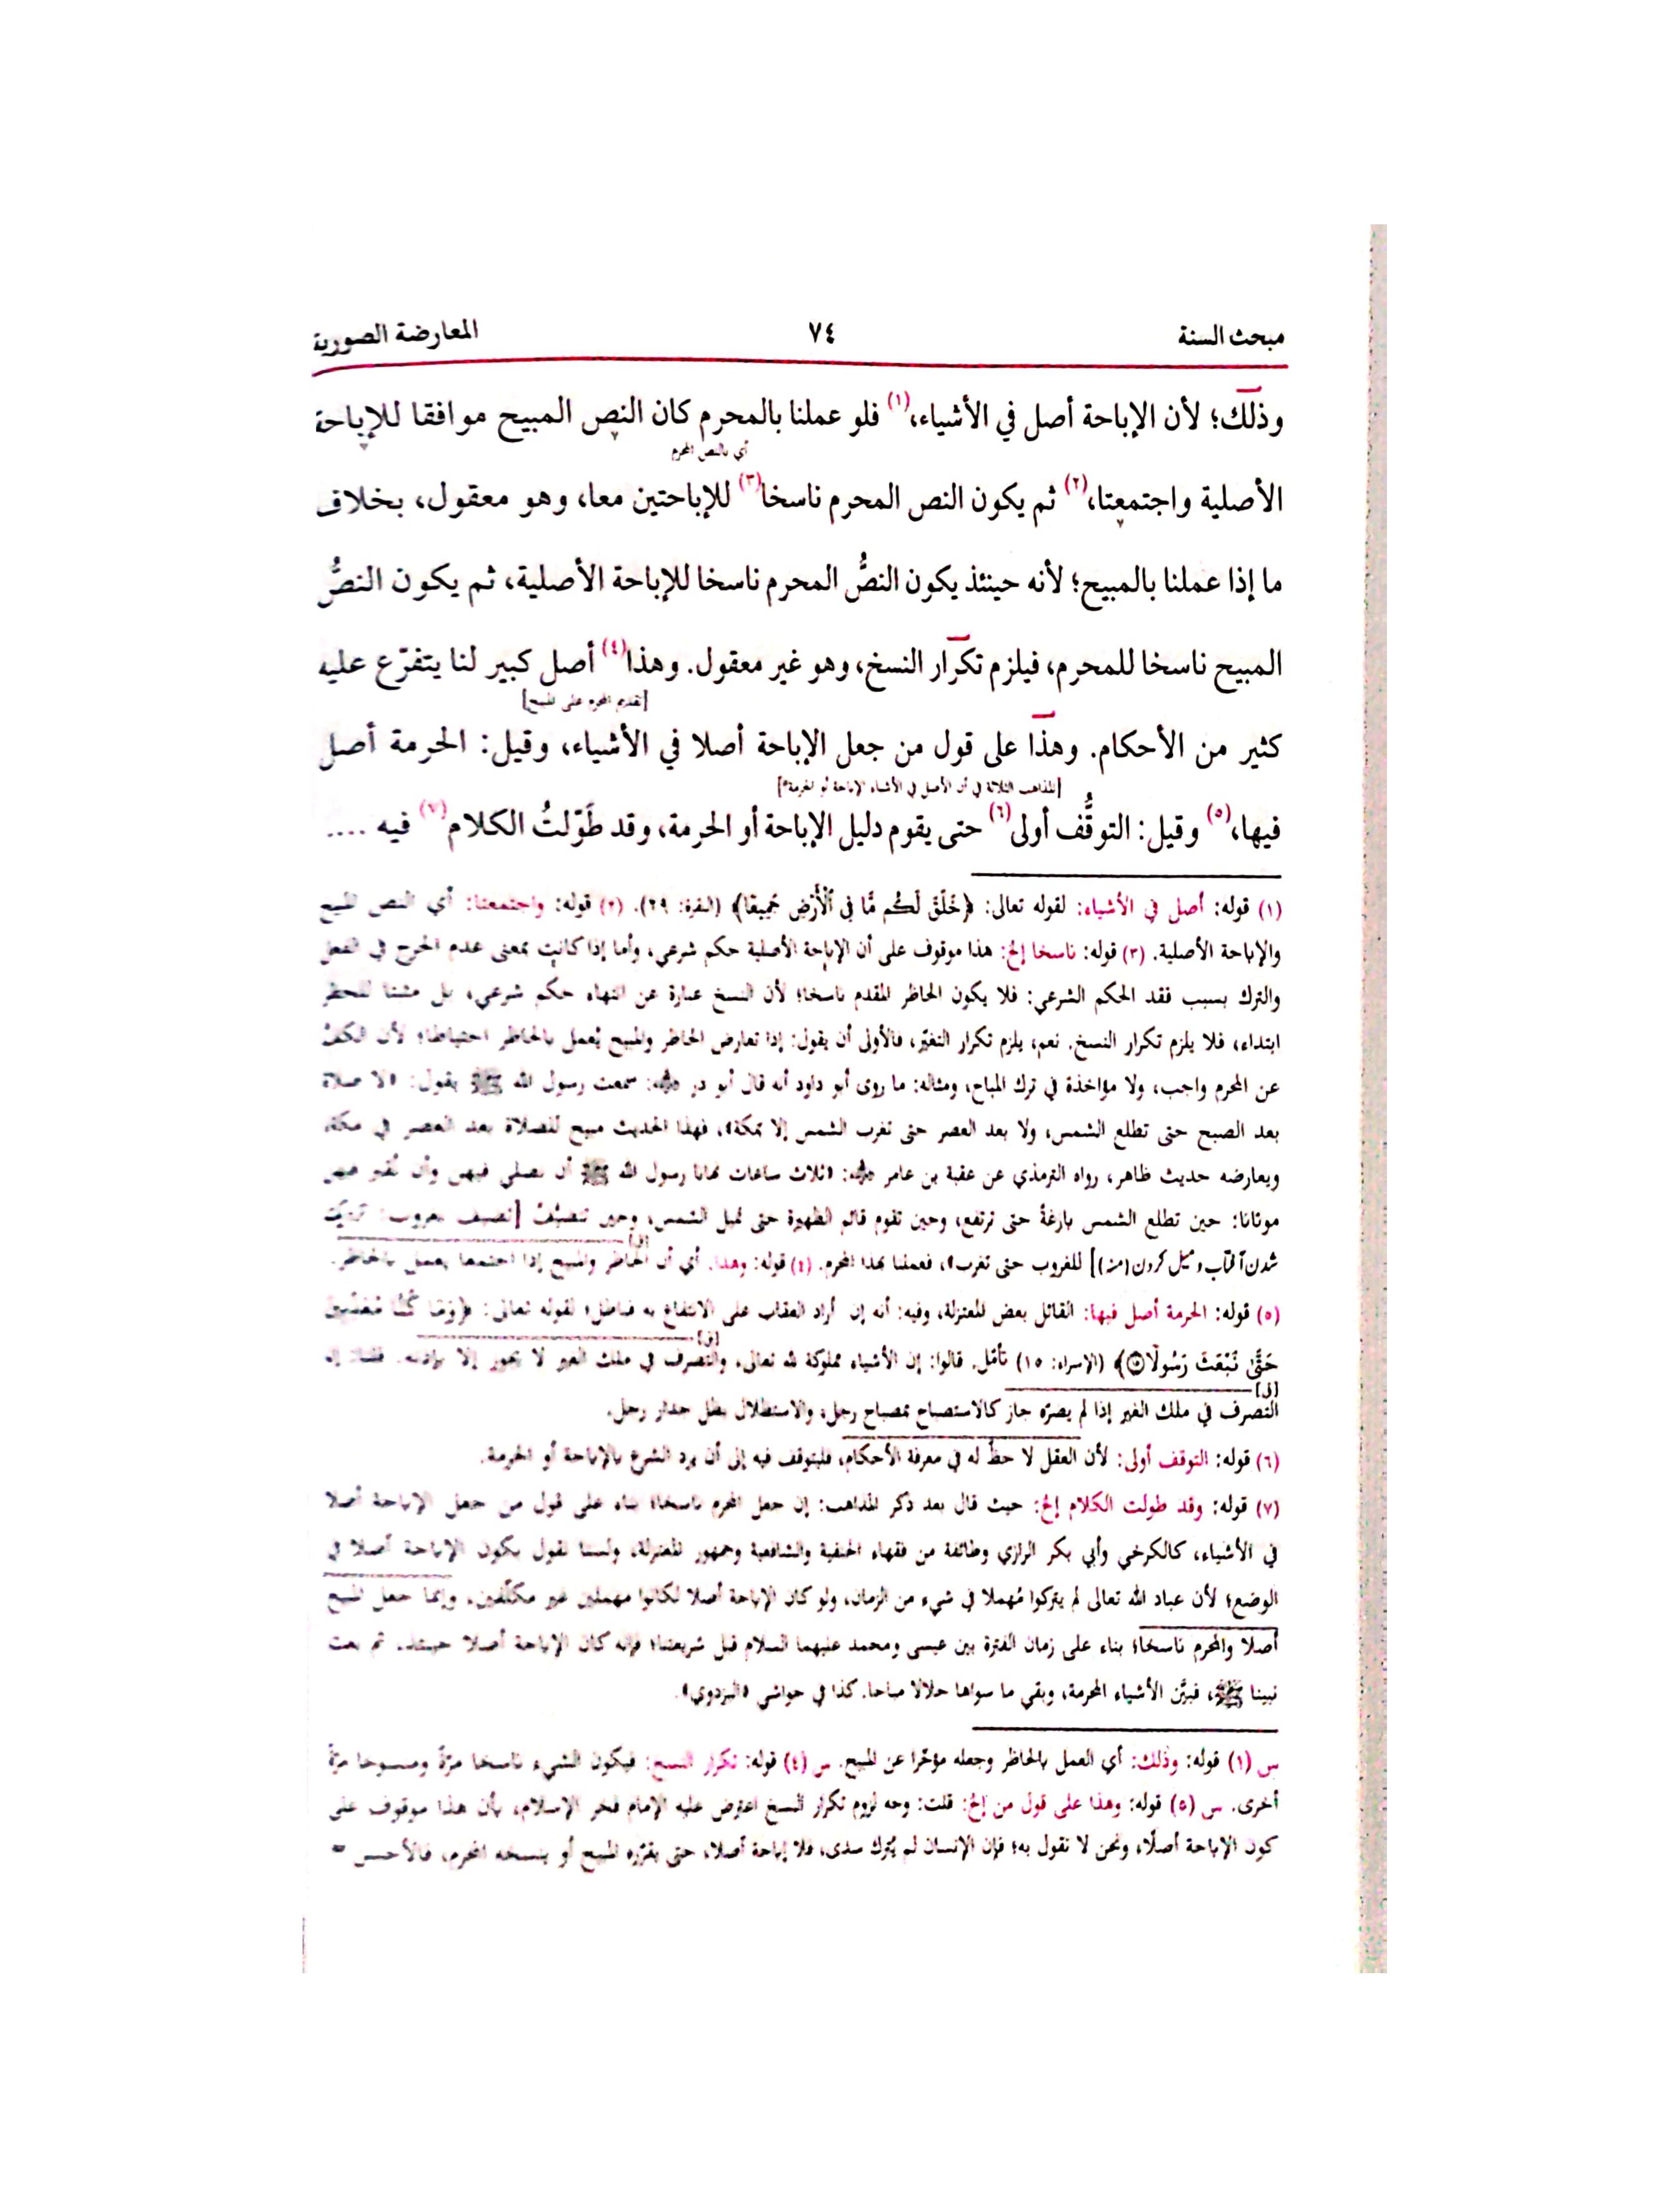 مبحث السنة ٧٤ المعارضة الصورية
وذلك؛ لأن الإباحة أصل في الأشياء،(١) فلو عملنا بالمحرم كان النص المبيح موافقا للإباحة
أي بالنص المحرم
الأصلية واجتمعتا،(٢) ثم يكون النص المحرم ناسخا(٣) للإباحتين معا، وهو معقول، بخلاف
ما إذا عملنا بالمبيح؛ لأنه حينئذ يكون النصُّ المحرم ناسخا للإباحة الأصلية، ثم يكون النصُّ
المبيح ناسخا للمحرم، فيلزم تكرار النسخ، وهو غير معقول. وهذا(٤) أصل كبير لنا يتفرّع عليه
[تقديم المحرم على المبيح]
كثير من الأحكام. وهذا على قول من جعل الإباحة أصلا في الأشياء، وقيل: الحرمة أصل
[المذاهب الثلاثة في أن الأصل في الأشياء الإباحة أو الحرمة]
فيها،(٥) وقيل: التوقُّف أولى(٦) حتى يقوم دليل الإباحة أو الحرمة، وقد طَوّلتُ الكلام(٧) فيه ....
(١) قوله: أصل في الأشياء: لقوله تعالى: ﴿خَلَقَ لَكُم مَّا فِي ٱلْأَرْضِ جَمِيعًا﴾ (البقرة: ٢٩). (٢) قوله: واجتمعتا: أي النص المبيح
والإباحة الأصلية. (٣) قوله: ناسخا إلخ: هذا موقوف على أن الإباحة الأصلية حكم شرعي، وأما إذا كانت بمعنى عدم الحرج في الفعل
والترك بسبب فقد الحكم الشرعي: فلا يكون الحاظر المقدم ناسخا؛ لأن النسخ عبارة عن انتهاء حكم شرعي، بل مثبتا للحظر
ابتداء، فلا يلزم تكرار النسخ. نعم، يلزم تكرار التغيّر، فالأولى أن يقول: إذا تعارض الحاظر والمبيح يُعمل بالحاظر احتياطا؛ لأن الكفّ
عن المحرم واجب، ولا مؤاخذة في ترك المباح، ومثاله: ما روى أبو داود أنه قال أبو ذر ﷺ: سمعت رسول الله ﷺ يقول: «لا صلاة
بعد الصبح حتى تطلع الشمس، ولا بعد العصر حتى تغرب الشمس إلا بمكة»، فهذا الحديث مبيح للصلاة بعد العصر في مكة،
ويعارضه حديث ظاهر، رواه الترمذي عن عقبة بن عامر: «ثلاث ساعات نهانا رسول الله ﷺ أن نصلي فيهن وأن نقبر فيهن
موتانا: حين تطلع الشمس بازغةً حتى ترتفع، وحين تقوم قائم الظهيرة حتى تميل الشمس، وحين تتضيّف
شدن آفتاب و میل کردن (من)] للغروب حتى تغرب»، فعملنا بهذا المحرم. (٤) قوله: وهذا: أي أن الحاظر والمبيح إذا اجتمعا يعمل بالحاظر.
(٥) قوله: الحرمة أصل فيها: القائل بعض المعتزلة، وفيه: أنه إن أراد العقاب على الانتفاع به فباطل؛ لقوله تعالى: ﴿وَمَا كُنَّا مُعَذِّبِينَ
حَتَّىٰ نَبْعَثَ رَسُولًا ١٥﴾ (الإسراء: ١٥) تأمّل. قالوا: إن الأشياء مملوكة لله تعالى، والتصرف في ملك الغير لا يجوز إلا بإذنه. قلنا: إن
التصرف في ملك الغير إذا لم يضرّه جاز كالاستصباح بمصباح رجل، والاستظلال بظل جدار رجل.
(٦) قوله: التوقف أولى: لأن العقل لا حظّ له في معرفة الأحكام، فليتوقف فيه إلى أن يرد الشرع بالإباحة أو الحرمة.
(٧) قوله: وقد طولت الكلام إلخ: حيث قال بعد ذكر المذاهب: إن جعل المحرم ناسخا؛ بناء على قول من جعل الإباحة أصلا
في الأشياء، كالكرخي وأبي بكر الرازي وطائفة من فقهاء الحنفية والشافعية وجمهور المعتزلة، ولسنا نقول بكون الإباحة أصلا في
الوضع؛ لأن عباد الله تعالى لم يتركوا مُهملا في شيء من الزمان، ولو كان الإباحة أصلا لكانوا مهملين غير مكلّفين، وإنما جعل المبيح
أصلا والمحرم ناسخا؛ بناء على زمان الفترة بين عيسى ومحمد عليهما السلام قبل شريعتنا؛ فإنه كان الإباحة أصلا حينئذ، ثم بعث
نبينا ﷺ، فبيَّن الأشياء المحرمة، وبقي ما سواها حلالا مباحا. كذا في حواشي «البزدوي».
س (١) قوله: وذلك: أي العمل بالحاظر وجعله مؤخّرا عن المبيح. س (٤) قوله: تكرار النسخ: فيكون الشيء ناسخا مرّةً ومنسوخا مرّةً
أخرى. س (٥) قوله: وهذا على قول من إلخ: قلت: وجه لزوم تكرار النسخ اعترض عليه الإمام فخر الإسلام، بأن هذا موقوف على
كون الإباحة أصلًا، ونحن لا نقول به؛ فإن الإنسان لم يُترك سدى، فلا إباحة أصلا، حتى يقرّره المبيح أو ينسخه المحرم، فالأحسن =